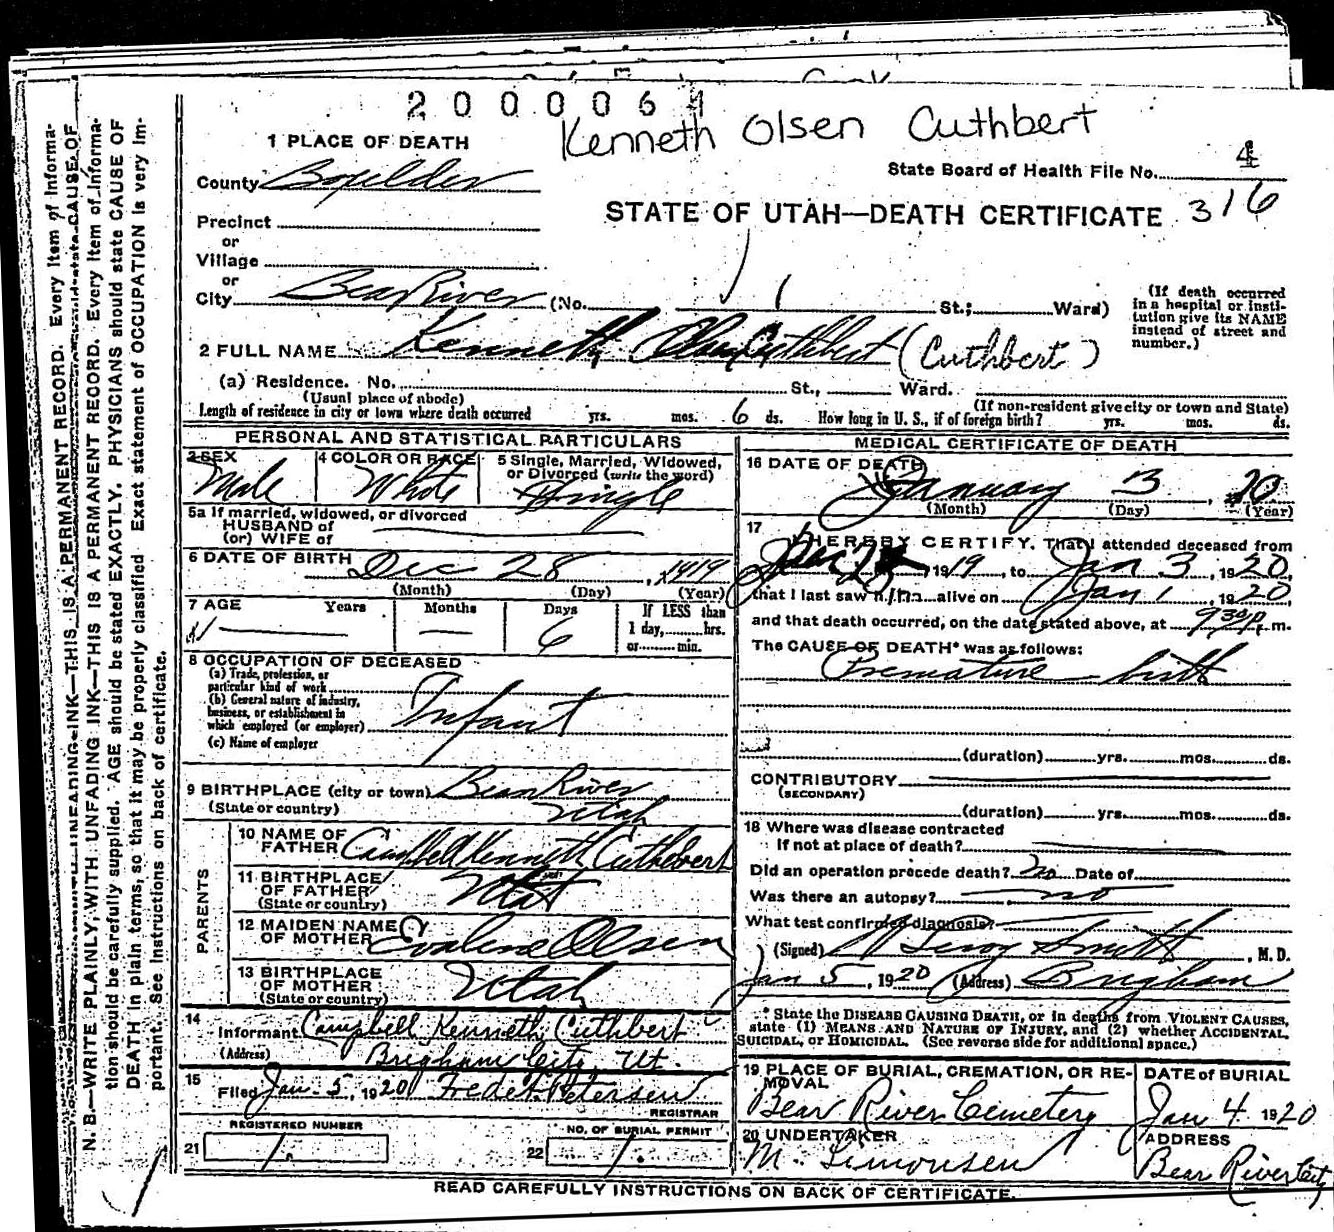 2000064
Kenneth Olsen Cuthbert
1 PLACE OF DEATH
State Board of Health File No. 4
County Boulder
STATE OF UTAH—DEATH CERTIFICATE 316
Precinct
or
Village
or
City Bear River (No. St.; Ward)
(If death occurred in a hospital or institution give its NAME instead of street and number.)
2 FULL NAME Kenneth Olsen Cuthbert (Cuthbert)
(a) Residence. No. St., Ward.
(Usual place of abode) (If non-resident give city or town and State)
Length of residence in city or town where death occurred yrs. mos. 6 ds. How long in U. S., if of foreign birth? yrs. mos. ds.
PERSONAL AND STATISTICAL PARTICULARS
3 SEX Male
4 COLOR OR RACE White
5 Single, Married, Widowed, or Divorced (write the word) Single
5a If married, widowed, or divorced
HUSBAND of
(or) WIFE of
6 DATE OF BIRTH Dec 28, 1919
(Month) (Day) (Year)
7 AGE Years Months Days If LESS than
6 1 day, hrs.
or min.
8 OCCUPATION OF DECEASED
(a) Trade, profession, or
particular kind of work
(b) General nature of industry,
business, or establishment in
which employed (or employer) Infant
(c) Name of employer
9 BIRTHPLACE (city or town) Bear River
(State or country) Utah
PARENTS
10 NAME OF FATHER Campbell Kenneth Cuthbert
11 BIRTHPLACE OF FATHER (State or country) Utah
12 MAIDEN NAME OF MOTHER Evalene Olsen
13 BIRTHPLACE OF MOTHER (State or country) Utah
14 Informant Campbell Kenneth Cuthbert
(Address) Brigham City, Ut.
15 Filed Jan. 5, 1920 Fredet. Petersen
REGISTRAR
REGISTERED NUMBER NO. OF BURIAL PERMIT
21 1. 22 1.
MEDICAL CERTIFICATE OF DEATH
16 DATE OF DEATH
January 3, 20
(Month) (Day) (Year)
17 I HEREBY CERTIFY, That I attended deceased from
1919, to Jan 3, 1920,
that I last saw him alive on Jan 1, 1920,
and that death occurred, on the date stated above, at 9 30 p. m.
The CAUSE OF DEATH* was as follows:
Premature birth
(duration) yrs. mos. ds.
CONTRIBUTORY
(SECONDARY)
(duration) yrs. mos. ds.
18 Where was disease contracted
If not at place of death?
Did an operation precede death? No Date of
Was there an autopsy? no
What test confirmed diagnosis?
(Signed) Leroy Smith, M. D.
Jan 5, 1920 (Address) Brigham
* State the DISEASE CAUSING DEATH, or in deaths from VIOLENT CAUSES,
state (1) MEANS AND NATURE OF INJURY, and (2) whether ACCIDENTAL,
SUICIDAL, or HOMICIDAL. (See reverse side for additional space.)
19 PLACE OF BURIAL, CREMATION, OR REMOVAL
Bear River Cemetery
DATE of BURIAL
Jan 4 1920
20 UNDERTAKER
M. Simonsen
ADDRESS
Bear River City
READ CAREFULLY INSTRUCTIONS ON BACK OF CERTIFICATE.
N. B.—WRITE PLAINLY, WITH UNFADING INK—THIS IS A PERMANENT RECORD. Every item of information should be carefully supplied. AGE should be stated EXACTLY. PHYSICIANS should state CAUSE OF DEATH in plain terms, so that it may be properly classified. Exact statement of OCCUPATION is very important. See instructions on back of certificate.